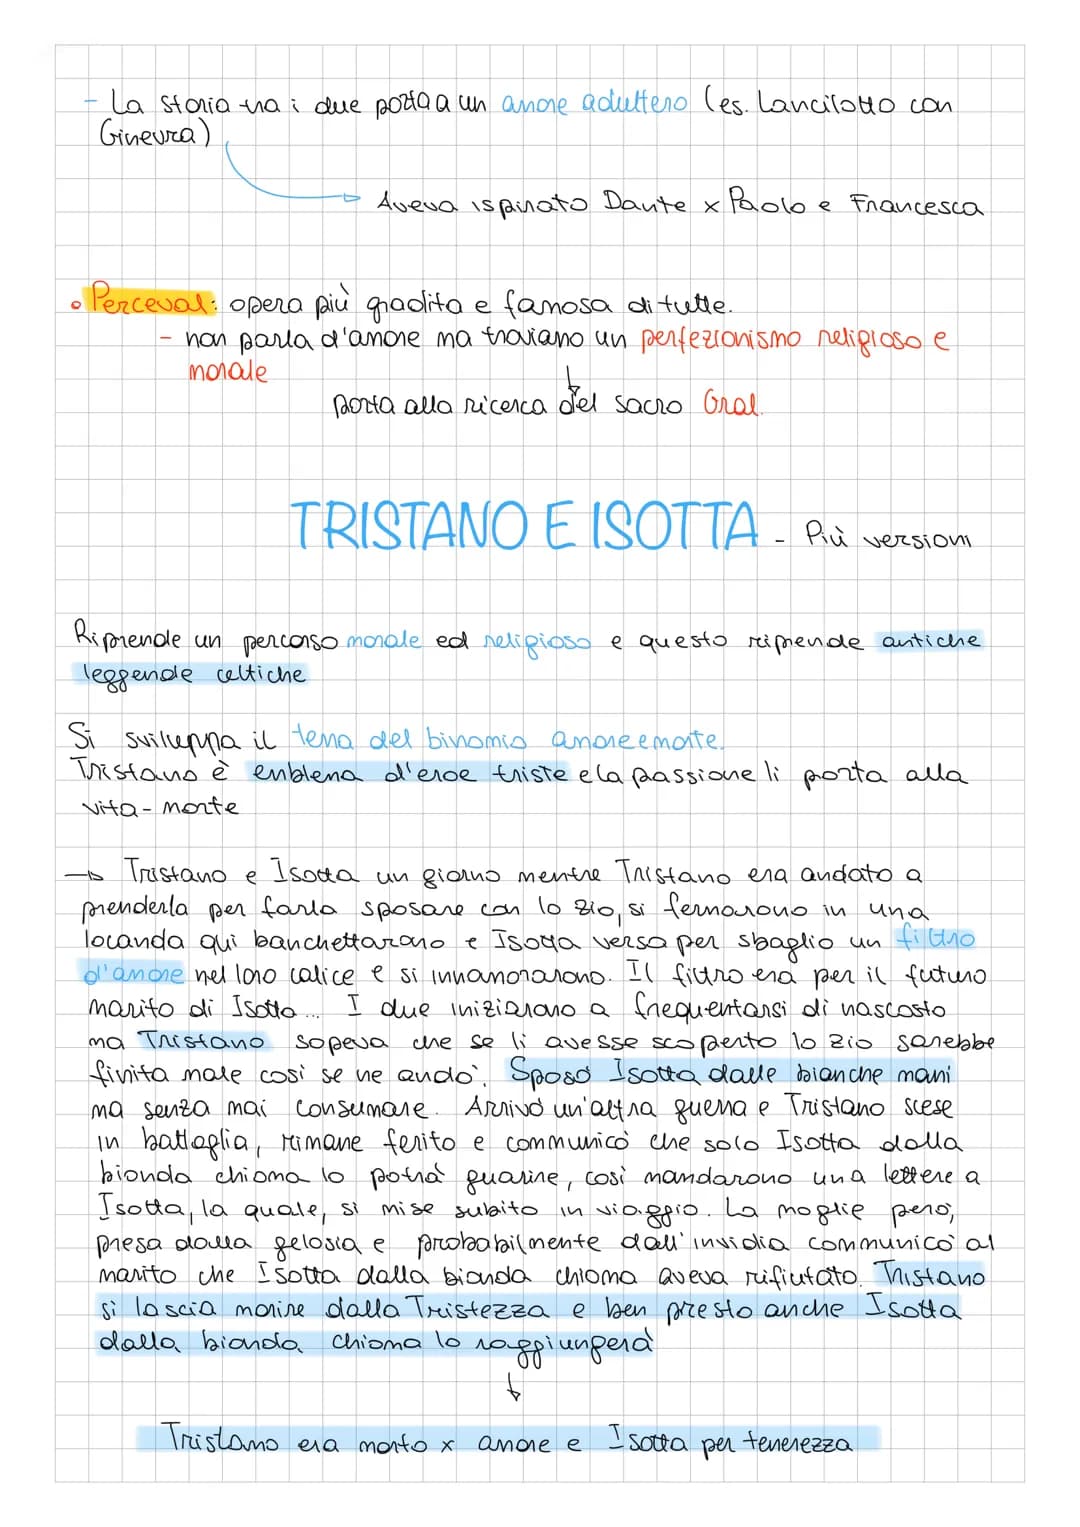 - La storia tra i due porta a un amore adultero (es. Lancilotto con
Ginevra)
Aveva ispirato Dante x Paolo e Francesca
• Perceval: opera più gradita e famosa di tutte.
- non parla d'amore ma troviamo un perfezionismo religioso e
morale
porta alla ricerca del sacro Gral.
TRISTANO E ISOTTA - Più versioni
Riprende un percorso morale ed religioso e questo riprende antiche
leggende celtiche
Si sviluppa il tema del binomio amore e morte.
Tristano è emblema d'eroe triste e la passione li porta alla
vita - morte
→ Tristano e Isotta un giorno mentre Tristano era andato a
prenderla per farla sposare con lo zio, si fermarono in una
locanda qui banchettarono e Isotta versa per sbaglio un filtro
d'amore nel loro calice e si innamorarono. Il filtro era per il futuro
marito di Isotta... I due iniziarono a frequentarsi di nascosto
ma Tristano sapeva che se li avesse scoperto lo zio sarebbe
finita male così se ne andò. Sposò Isotta dalle bianche mani
ma senza mai consumare. Arrivò un'altra guerra e Tristano scese
in battaglia, rimane ferito e communicò che solo Isotta dalla
bionda chioma lo potrà guarire, così mandarono una lettere a
Isotta, la quale, si mise subito in viaggio. La moglie però,
presa dalla gelosia e probabilmente dall'invidia communicò al
marito che Isotta dalla bionda chioma aveva rifiutato. Tristano
si lascia morire dalla Tristezza e ben presto anche Isotta
dalla bionda chioma lo raggiungerà
Tristano era morto x amore e Isotta per tenerezza